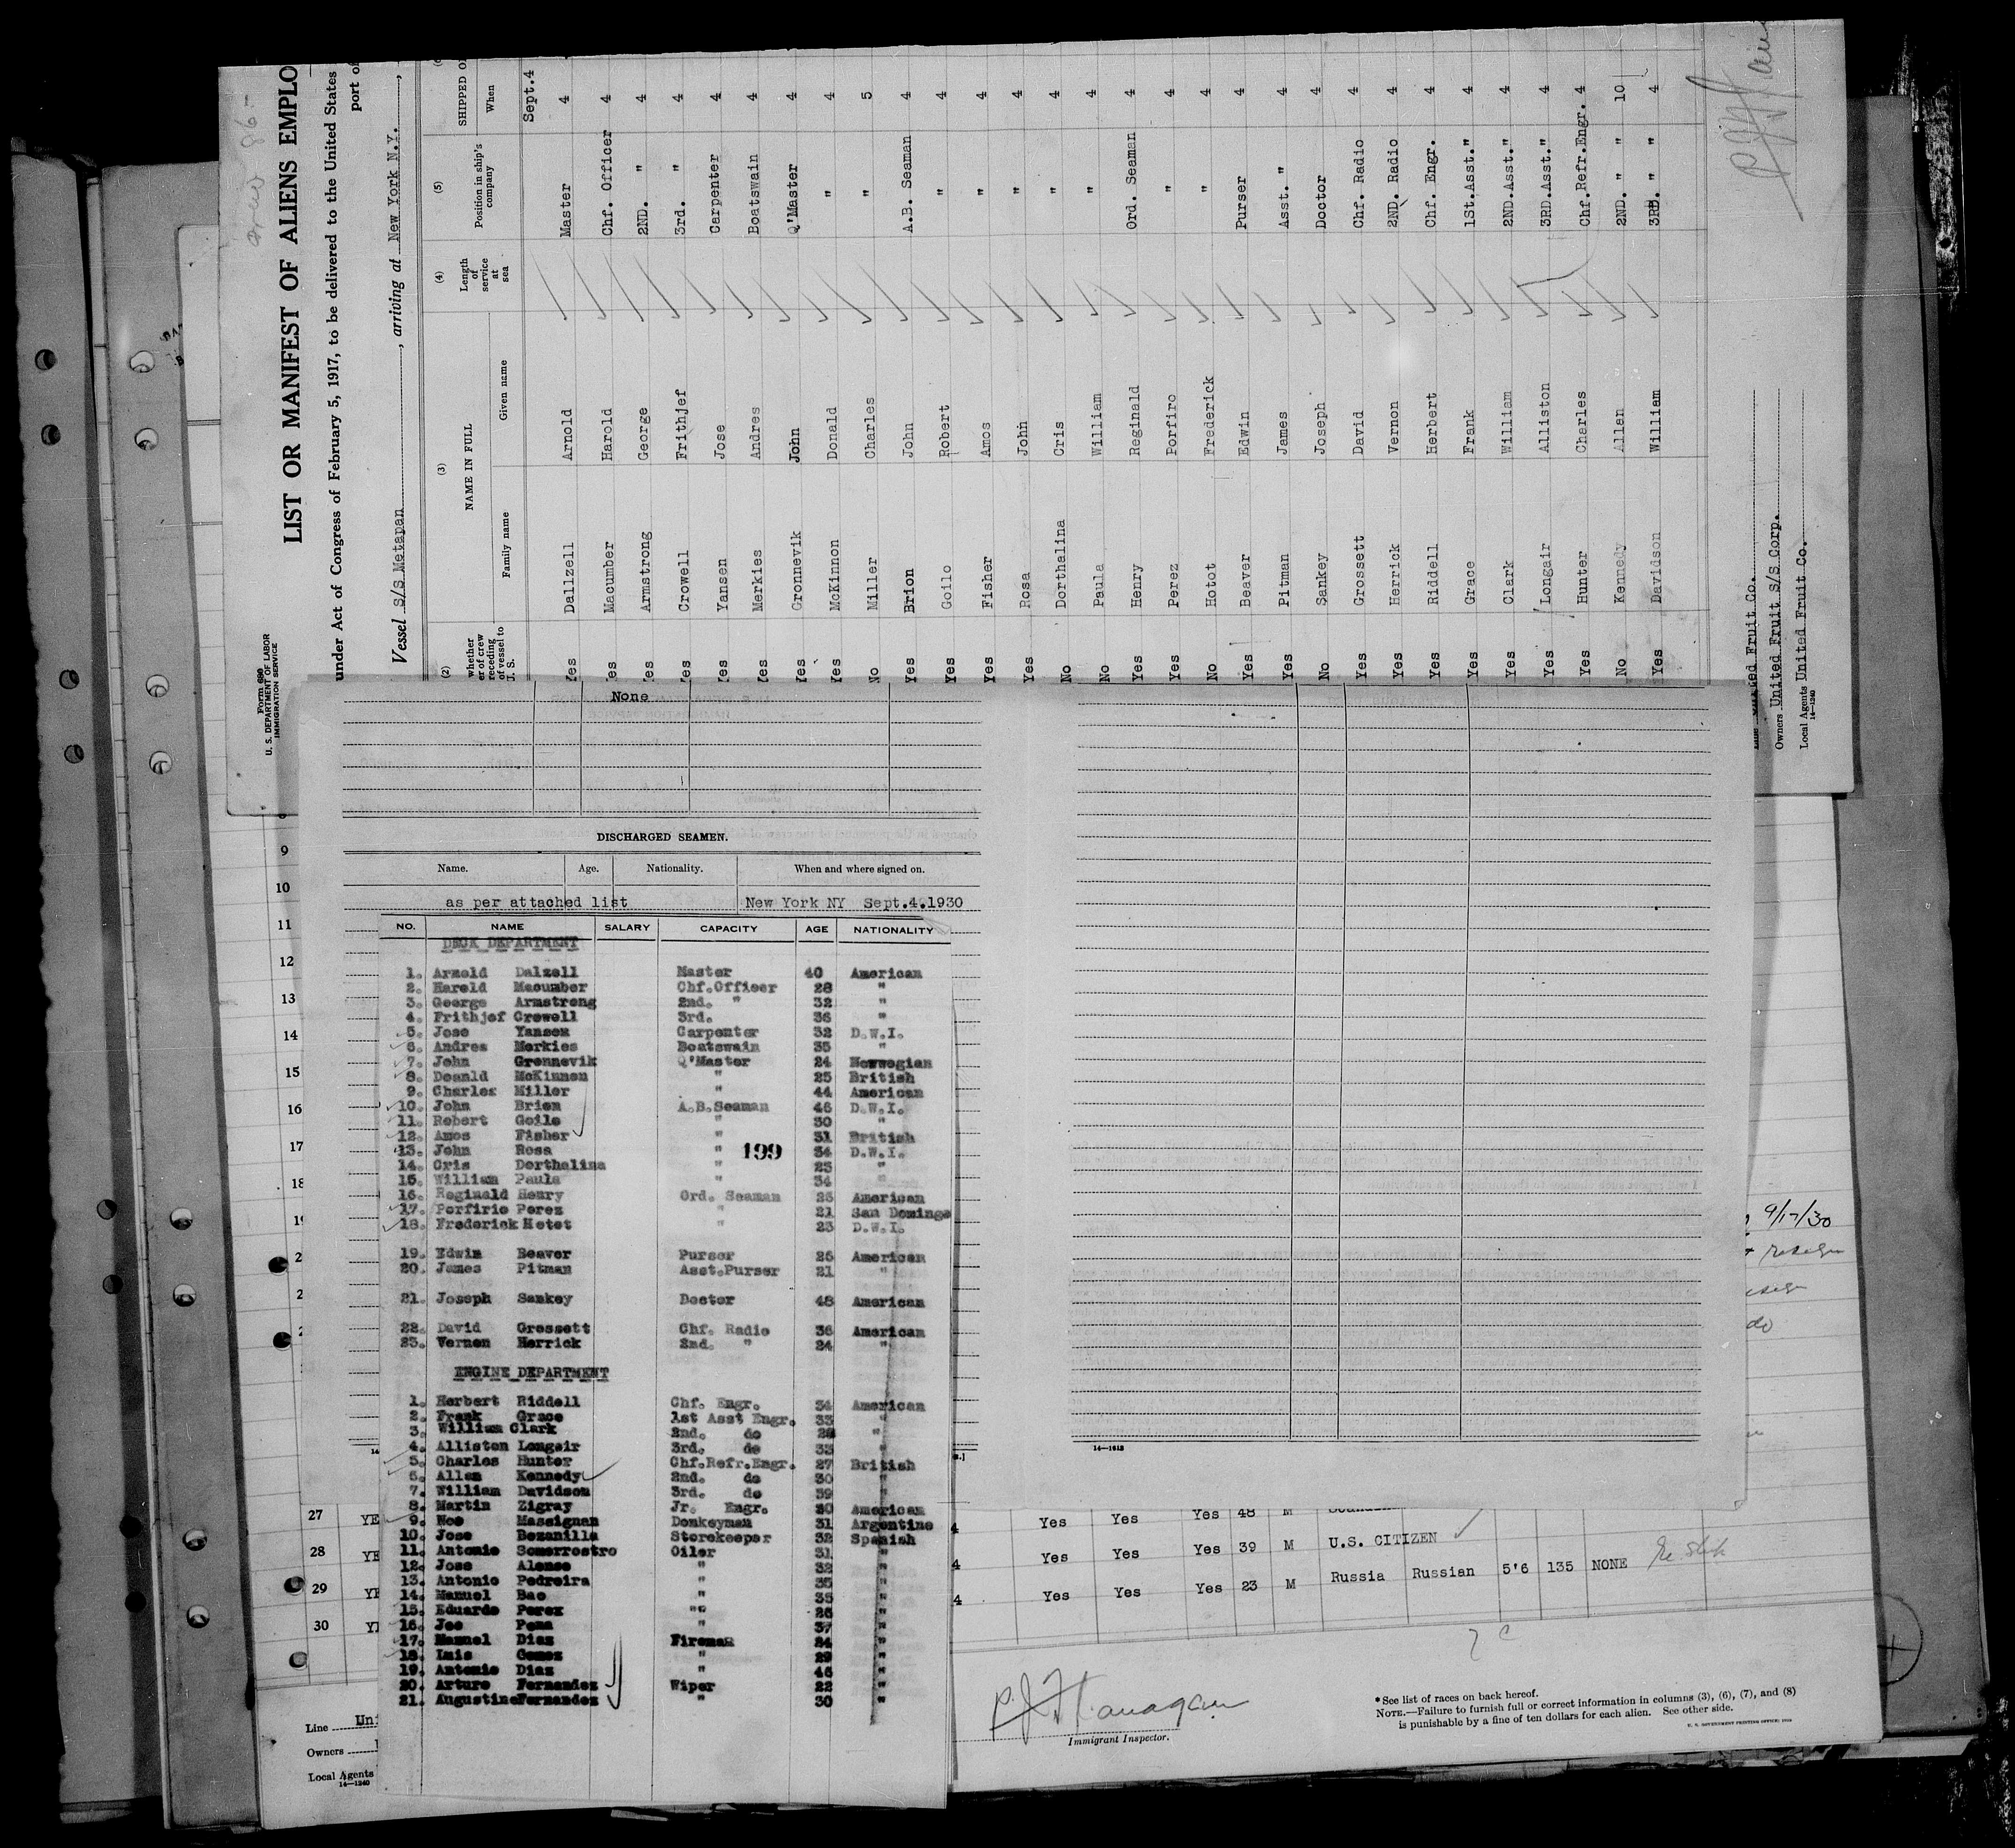 Form 686
U. S. DEPARTMENT OF LABOR
IMMIGRATION SERVICE
LIST OR MANIFEST OF ALIENS EMPLO
under Act of Congress of February 5, 1917, to be delivered to the United States
port of
Vessel S/S Metapan, arriving at New York N.Y.,
(2) (3) (4) (5)
NAME IN FULL Length of service at sea Position in ship's company SHIPPED O
whether er of crew receding of vessel to U. S. Family name Given name When
Sept.4
Yes Dallzell Arnold Master 4
es Macumber Harold Chf. Officer 4
es Armstrong George 2ND. " 4
es Crowell Frithjef 3rd. " 4
es Yansen Jose Carpenter 4
es Merkies Andres Boatswain 4
Yes Gronnevik John Q'Master 4
Yes McKinnon Donald " 4
No Miller Charles " 5
Yes Brion John A.B. Seaman 4
Yes Goilo Robert " 4
Yes Fisher Amos " 4
Yes Rosa John " 4
No Dorthalina Cris " 4
No Paula William " 4
Yes Henry Reginald Ord. Seaman 4
Yes Perez Porfiro " 4
No Hotot Frederick " 4
Yes Beaver Edwin Purser 4
Yes Pitman James Asst. " 4
No Sankey Joseph Doctor 4
Yes Grossett David Chf. Radio 4
Yes Herrick Vernon 2ND. Radio 4
Yes Riddell Herbert Chf. Engr. 4
Yes Grace Frank 1St.Asst." 4
Yes Clark William 2ND.Asst." 4
Yes Longair Alliston 3RD.Asst." 4
Yes Hunter Charles Chf.Refr.Engr. 4
No Kennedy Allan 2ND. " " 10
Yes Davidson William 3RD. " " 4
Fruit Co.
Owners United Fruit S/S Corp.
Local Agents United Fruit Co.
14—1240
None
DISCHARGED SEAMEN.
Name. Age. Nationality. When and where signed on.
as per attached list New York NY Sept.4.1930
NO. NAME SALARY CAPACITY AGE NATIONALITY
DECK DEPARTMENT
1. Arnold Dalzell Master 40 American
2. Harold Macumber Chf.Officer 28 "
3. George Armstrong 2nd. " 32 "
4. Frithjof Crowell 3rd. 36 "
5. Jose Yansen Carpenter 32 D.W.I.
6. Andres Merkies Boatswain 35 "
7. John Gronnevik Q'Master 24 Norwegian
8. Donald McKinnon " 25 British
9. Charles Miller " 44 American
10. John Brion A.B.Seaman 46 D.W.I.
11. Robert Goilo " 30 "
12. Amos Fisher " 31 British
13. John Rosa " 34 D.W.I.
199
14. Cris Dorthalina " 23 "
15. William Paula " 34 "
16. Reginald Henry Ord. Seaman 25 American
17. Porfirio Perez " 21 San Domingo
18. Frederick Hotot " 23 D.W.I.
19. Edwin Beaver Purser 25 American
20. James Pitman Asst.Purser 21 "
21. Joseph Sankey Doctor 48 American
22. David Grossett Chf. Radio 36 American
23. Vernon Herrick 2nd. " 24 "
ENGINE DEPARTMENT
1. Herbert Riddell Chf. Engr. 34 American
2. Frank Grace 1st Asst Engr. 33 "
3. William Clark 2nd. do 28 "
4. Alliston Longair 3rd. do 33 "
5. Charles Hunter Chf.Refr.Engr. 27 British
6. Allan Kennedy 2nd. do 30 "
7. William Davidson 3rd. do 39 "
8. Martin Zigray Jr. Engr. 30 American
9. Noe Massignan Donkeyman 31 Argentine
10. Jose Bezanilla Storekeeper 32 Spanish
11. Antonio Somerrostro Oiler 31 "
12. Jose Alonso " 32 "
13. Antonio Pedreira " 35 "
14. Manuel Bao " 35 "
15. Eduardo Perez " 26 "
16. Jose Pena " 37 "
17. Manuel Diaz Fireman 24 "
18. Luis Gomez " 29 "
19. Antonio Diaz " 46 "
20. Arturo Fernandez Wiper 22 "
21. Augustine Fernandez " 30 "
9
10
11
12
13
14
15
16
17
18
14—1618
9/17/30
do
27 YE 4 Yes Yes Yes 48 M
28 YE 4 Yes Yes Yes 39 M U.S. CITIZEN
29 YE 4 Yes Yes Yes 23 M Russia Russian 5'6 135 NONE
30 YE
Line Uni
Owners
Local Agents
14—1240
P. J. Flanagan
Immigrant Inspector.
* See list of races on back hereof.
NOTE.—Failure to furnish full or correct information in columns (3), (6), (7), and (8)
is punishable by a fine of ten dollars for each alien. See other side.